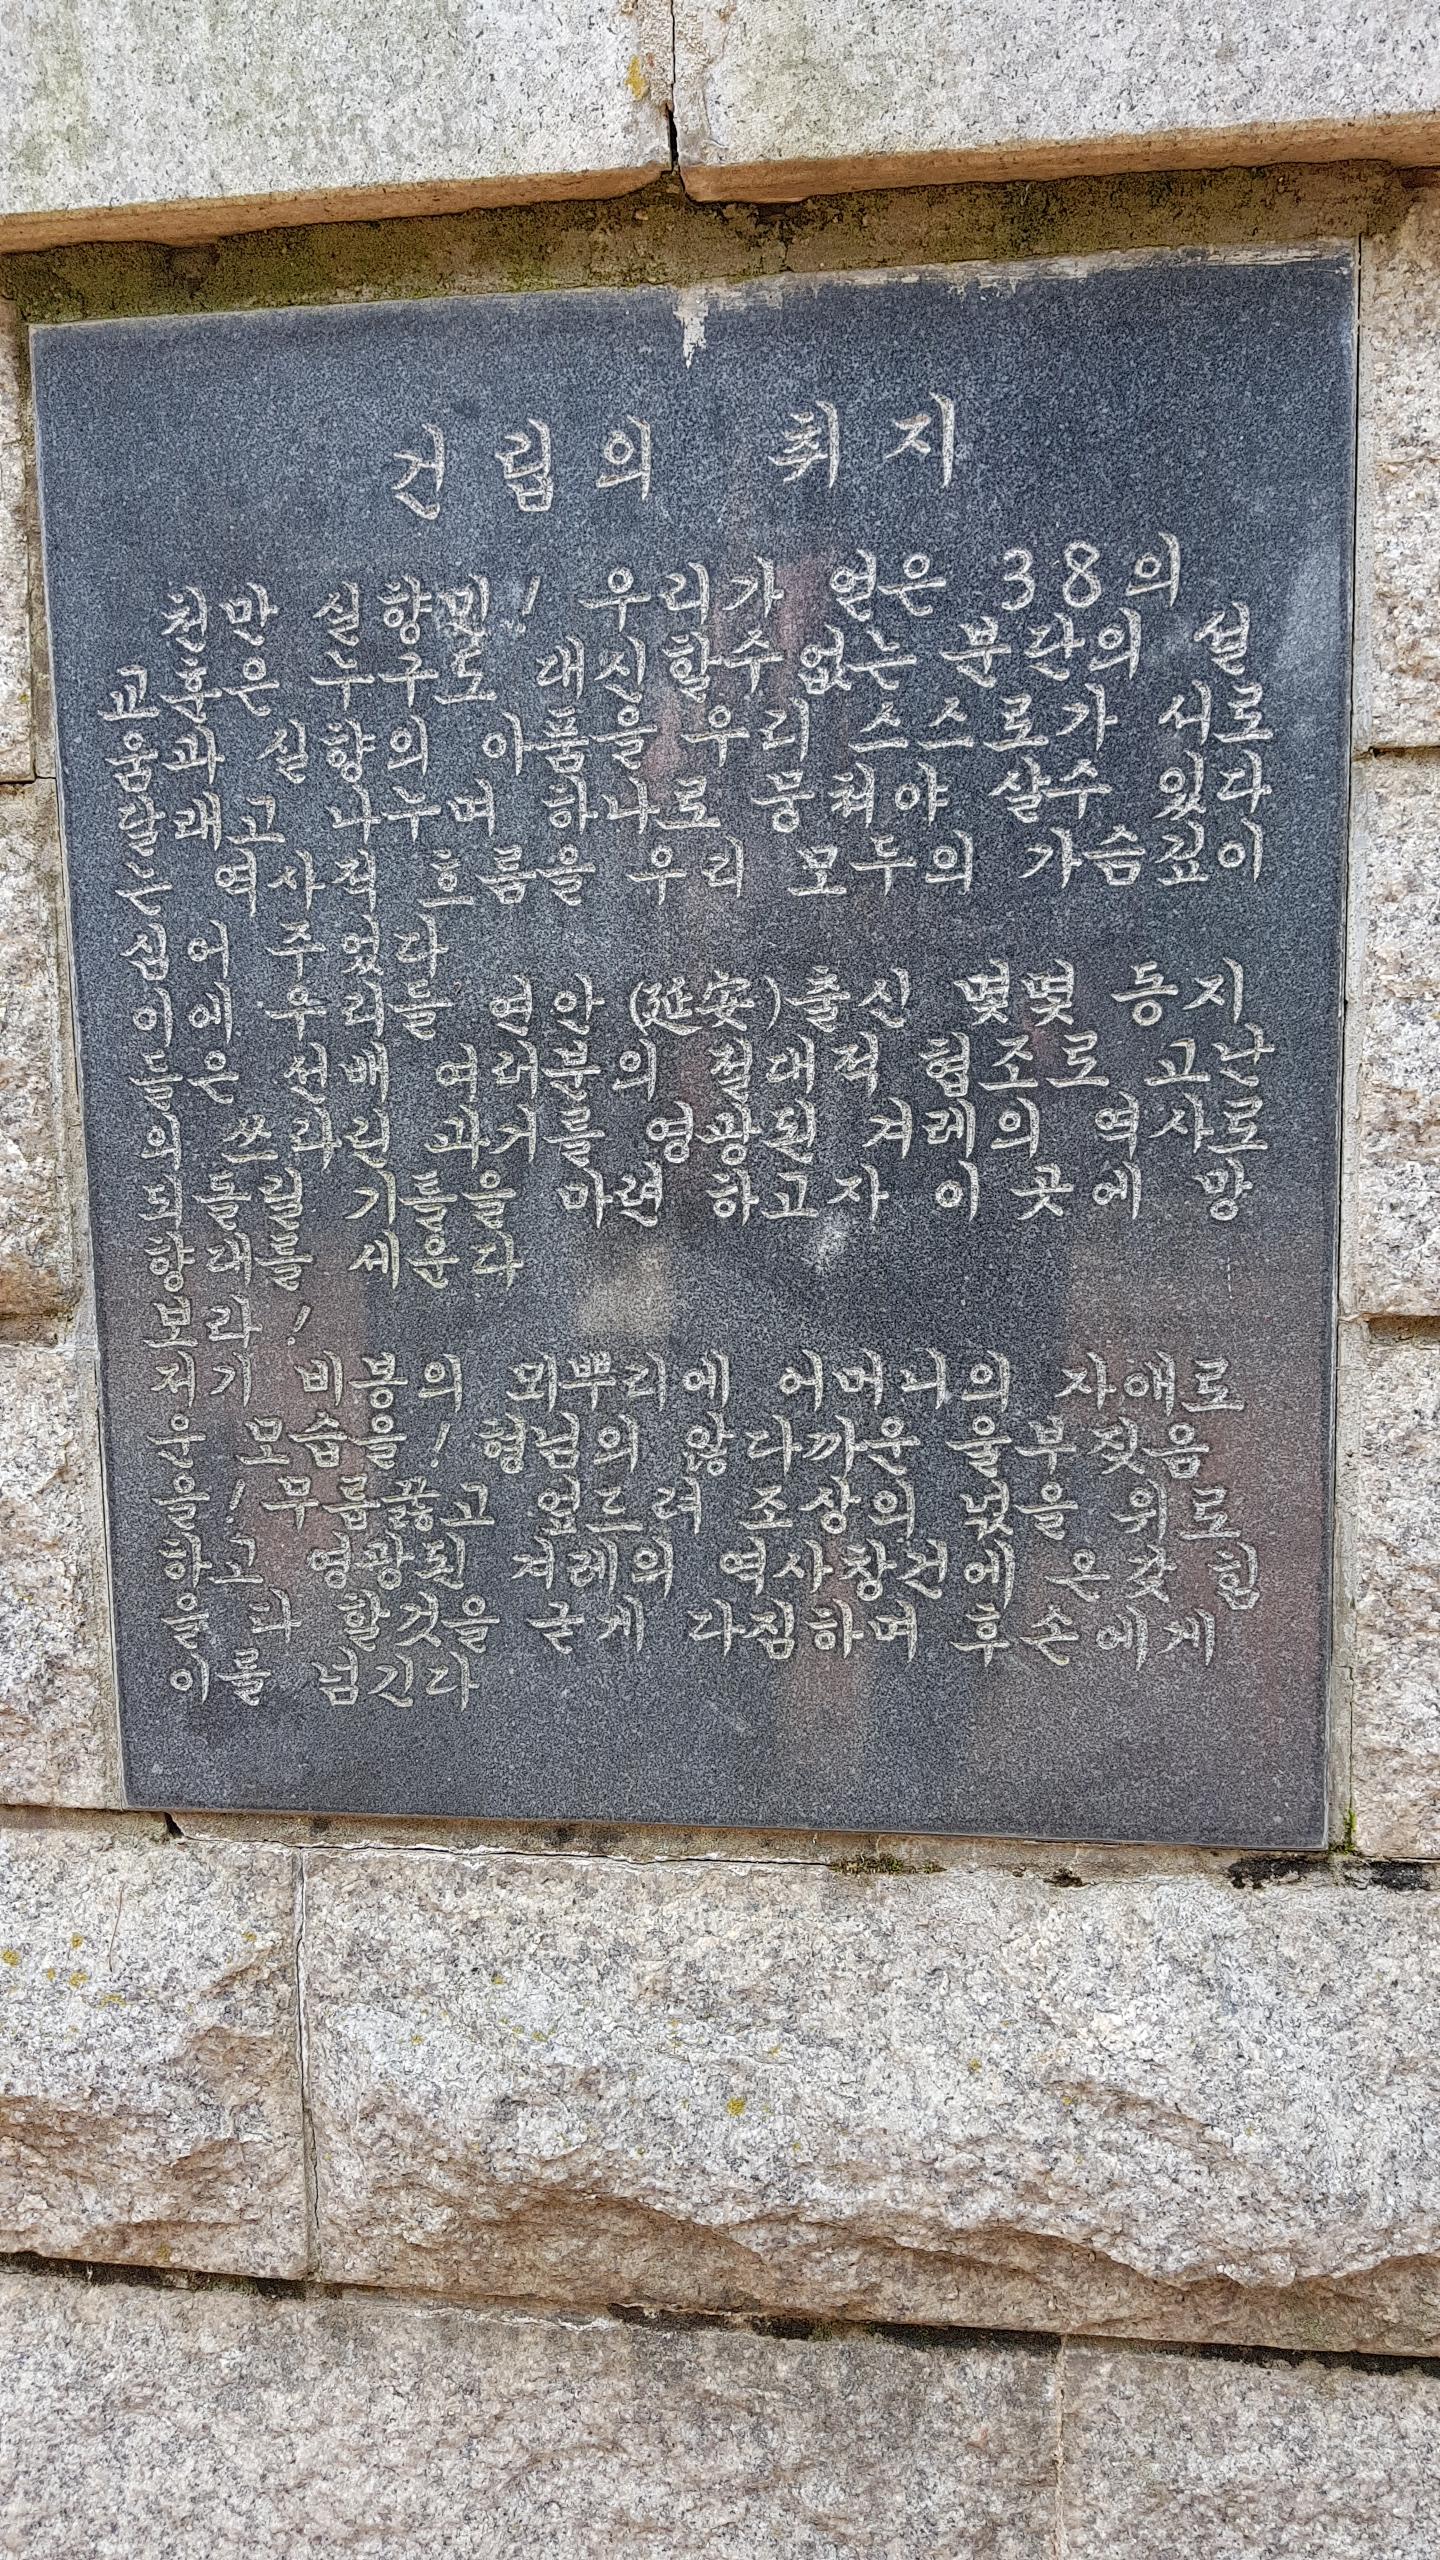 건립의 취지
천만 실향민! 우리가 얻은 38의
교훈은 누구도 대신할수 없는 분단의 설
움과 실향의 아품을 우리 스스로가 서로
달래고 나누며 하나로 뭉쳐야 살수 있다
는 역사적 흐름을 우리 모두의 가슴깊이
심어 주었다
이에 우리들 연안(延安)출신 몇몇 동지
들은 선배 여러분의 절대적 협조로 고난
의 쓰라린 과거를 영광된 겨레의 역사로
되돌릴 기틀을 마련 하고자 이곳에 망
향대를 세운다
보라!
저기 비봉의 뫼뿌리에 어머니의 자애로
운 모습을! 형님의 않다까운 울부짖음
을! 무릎꿇고 엎드려 조상의 넋을 위로
하고 영광된 겨레의 역사창건에 온갖 힘
을 다 할것을 굳게 다짐하며 후손에게
이를 넘긴다